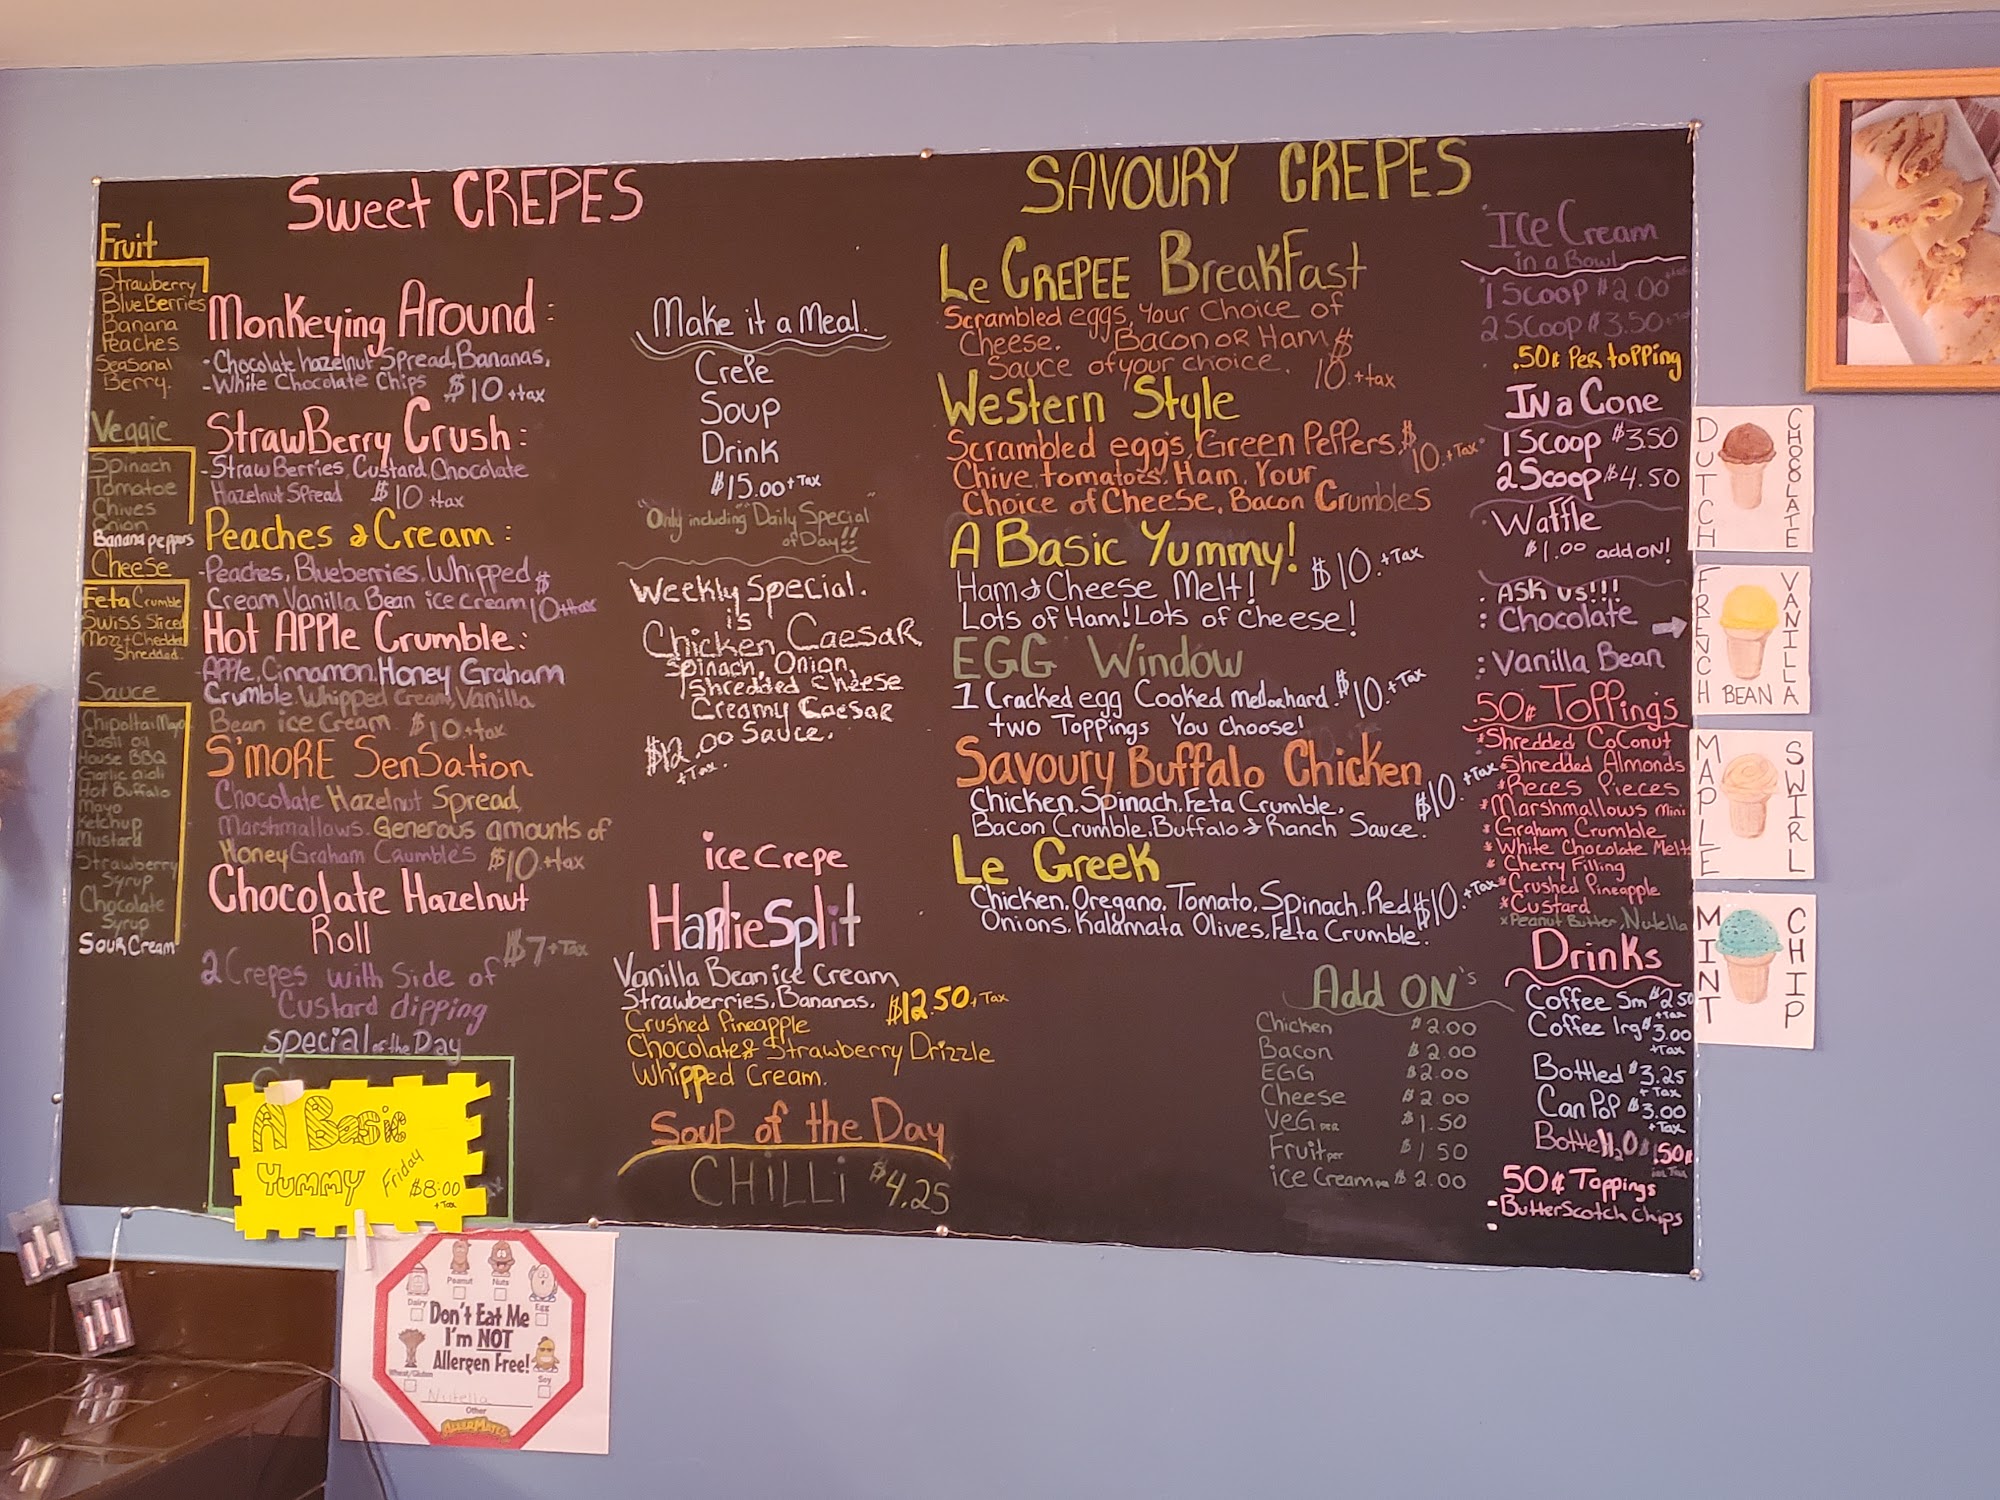 Sweet CREPES
Fruit
Strawberry
BlueBerries
Banana
Peaches
Seasonal
Berry.
Veggie
Spinach
Tomatoe
Chives
Onion
Banana peppers
Cheese
Feta Crumble
Swiss Sliced
Mozz + Cheddar
Shredded.
Sauce
Chipolta Mayo
Basil oil
House BBQ
Garlic aioli
Hot Buffalo
Mayo
Ketchup
Mustard
Strawberry
Syrup
Chocolate
Syrup
Sour Cream
Monkeying Around:
- Chocolate hazelnut Spread, Bananas,
- White Chocolate Chips $10 +tax
StrawBerry Crush:
- StrawBerries, Custard, Chocolate
Hazelnut Spread $10 +tax
Peaches & Cream:
- Peaches, Blueberries, Whipped $
Cream Vanilla Bean ice cream 10 +tax
Hot APPle Crumble:
- APPle, Cinnamon, Honey Graham
Crumble Whipped Cream, Vanilla
Bean ice Cream $10 +tax
S'MORE SenSation
Chocolate Hazelnut Spread,
Marshmallows. Generous amounts of
Honey Graham Crumble's $10 +tax
Chocolate Hazelnut
Roll
$7 +Tax
2 Crepes with Side of
Custard dipping
special of the Day
A Basic
Yummy
Friday
$8.00
+Tax
Make it a Meal.
Crepe
Soup
Drink
$15.00 +Tax
"Only including" Daily Special
of Day!!
Weekly Special.
is
Chicken Caesar
Spinach, Onion,
Shredded cheese
Creamy Caesar
Sauce.
$12.00
+Tax.
ice Crepe
HarlieSplit
Vanilla Bean ice Cream
Strawberries, Bananas. $12.50 +Tax
Crushed Pineapple
Chocolate & Strawberry Drizzle
Whipped Cream.
Soup of the Day
CHiLLi $4.25
SAVOURY CREPES
Le CREPEE BreakFast
Scrambled eggs, Your Choice of
Cheese. Bacon or Ham $
Sauce of your choice. 10.+tax
Western Style
Scrambled eggs, Green Peppers, $
10.+Tax
Chive, tomatoes, Ham, Your
Choice of Cheese, Bacon Crumbles
A Basic Yummy!
$10.+Tax
Ham & Cheese Melt!
Lots of Ham! Lots of cheese!
EGG Window
1 Cracked egg Cooked med or hard. $10.+Tax
two Toppings You Choose!
Savoury Buffalo Chicken
$10.+Tax
Chicken, Spinach, Feta Crumble,
Bacon Crumble, Buffalo & Ranch Sauce.
Le Greek
Chicken, Oregano, Tomato, Spinach, Red $10.+Tax
Onions, Kalamata Olives, Feta Crumble.
Add ON's
Chicken $2.00
Bacon $2.00
EGG $2.00
Cheese $2.00
VeG per $1.50
Fruit per $1.50
ice Cream $2.00
Ice Cream
in a Bowl
1 Scoop $2.00
2 Scoop $3.50
.50¢ Per topping
IN a Cone
1 Scoop $3.50
2 Scoop $4.50
Waffle
$1.00 add ON!
. Ask us!!!
: Chocolate
: Vanilla Bean
.50¢ Toppings
*Shredded Coconut
*Shredded Almonds
*Reces Pieces
*Marshmallows Mini
*Graham Crumble
*White Chocolate Melts
*Cherry Filling
*Crushed Pineapple
*Custard
*Peanut Butter, Nutella
Drinks
Coffee Sm $2.50
+Tax
Coffee lrg $3.00
+Tax
Bottled $3.25
+Tax
Can PoP $3.00
+Tax
Bottle H2O $1.50¢
50¢ Toppings
- Butterscotch Chips
-
DUTCH
CHOCOLATE
FRENCH
VANILLA
BEAN
MAPLE
SWIRL
MINT
CHIP
Dairy
Peanut
Nuts
Egg
Don't Eat Me
I'm NOT
Allergen Free!
Wheat/Gluten
Soy
Nutella
Other
ALLERMATES